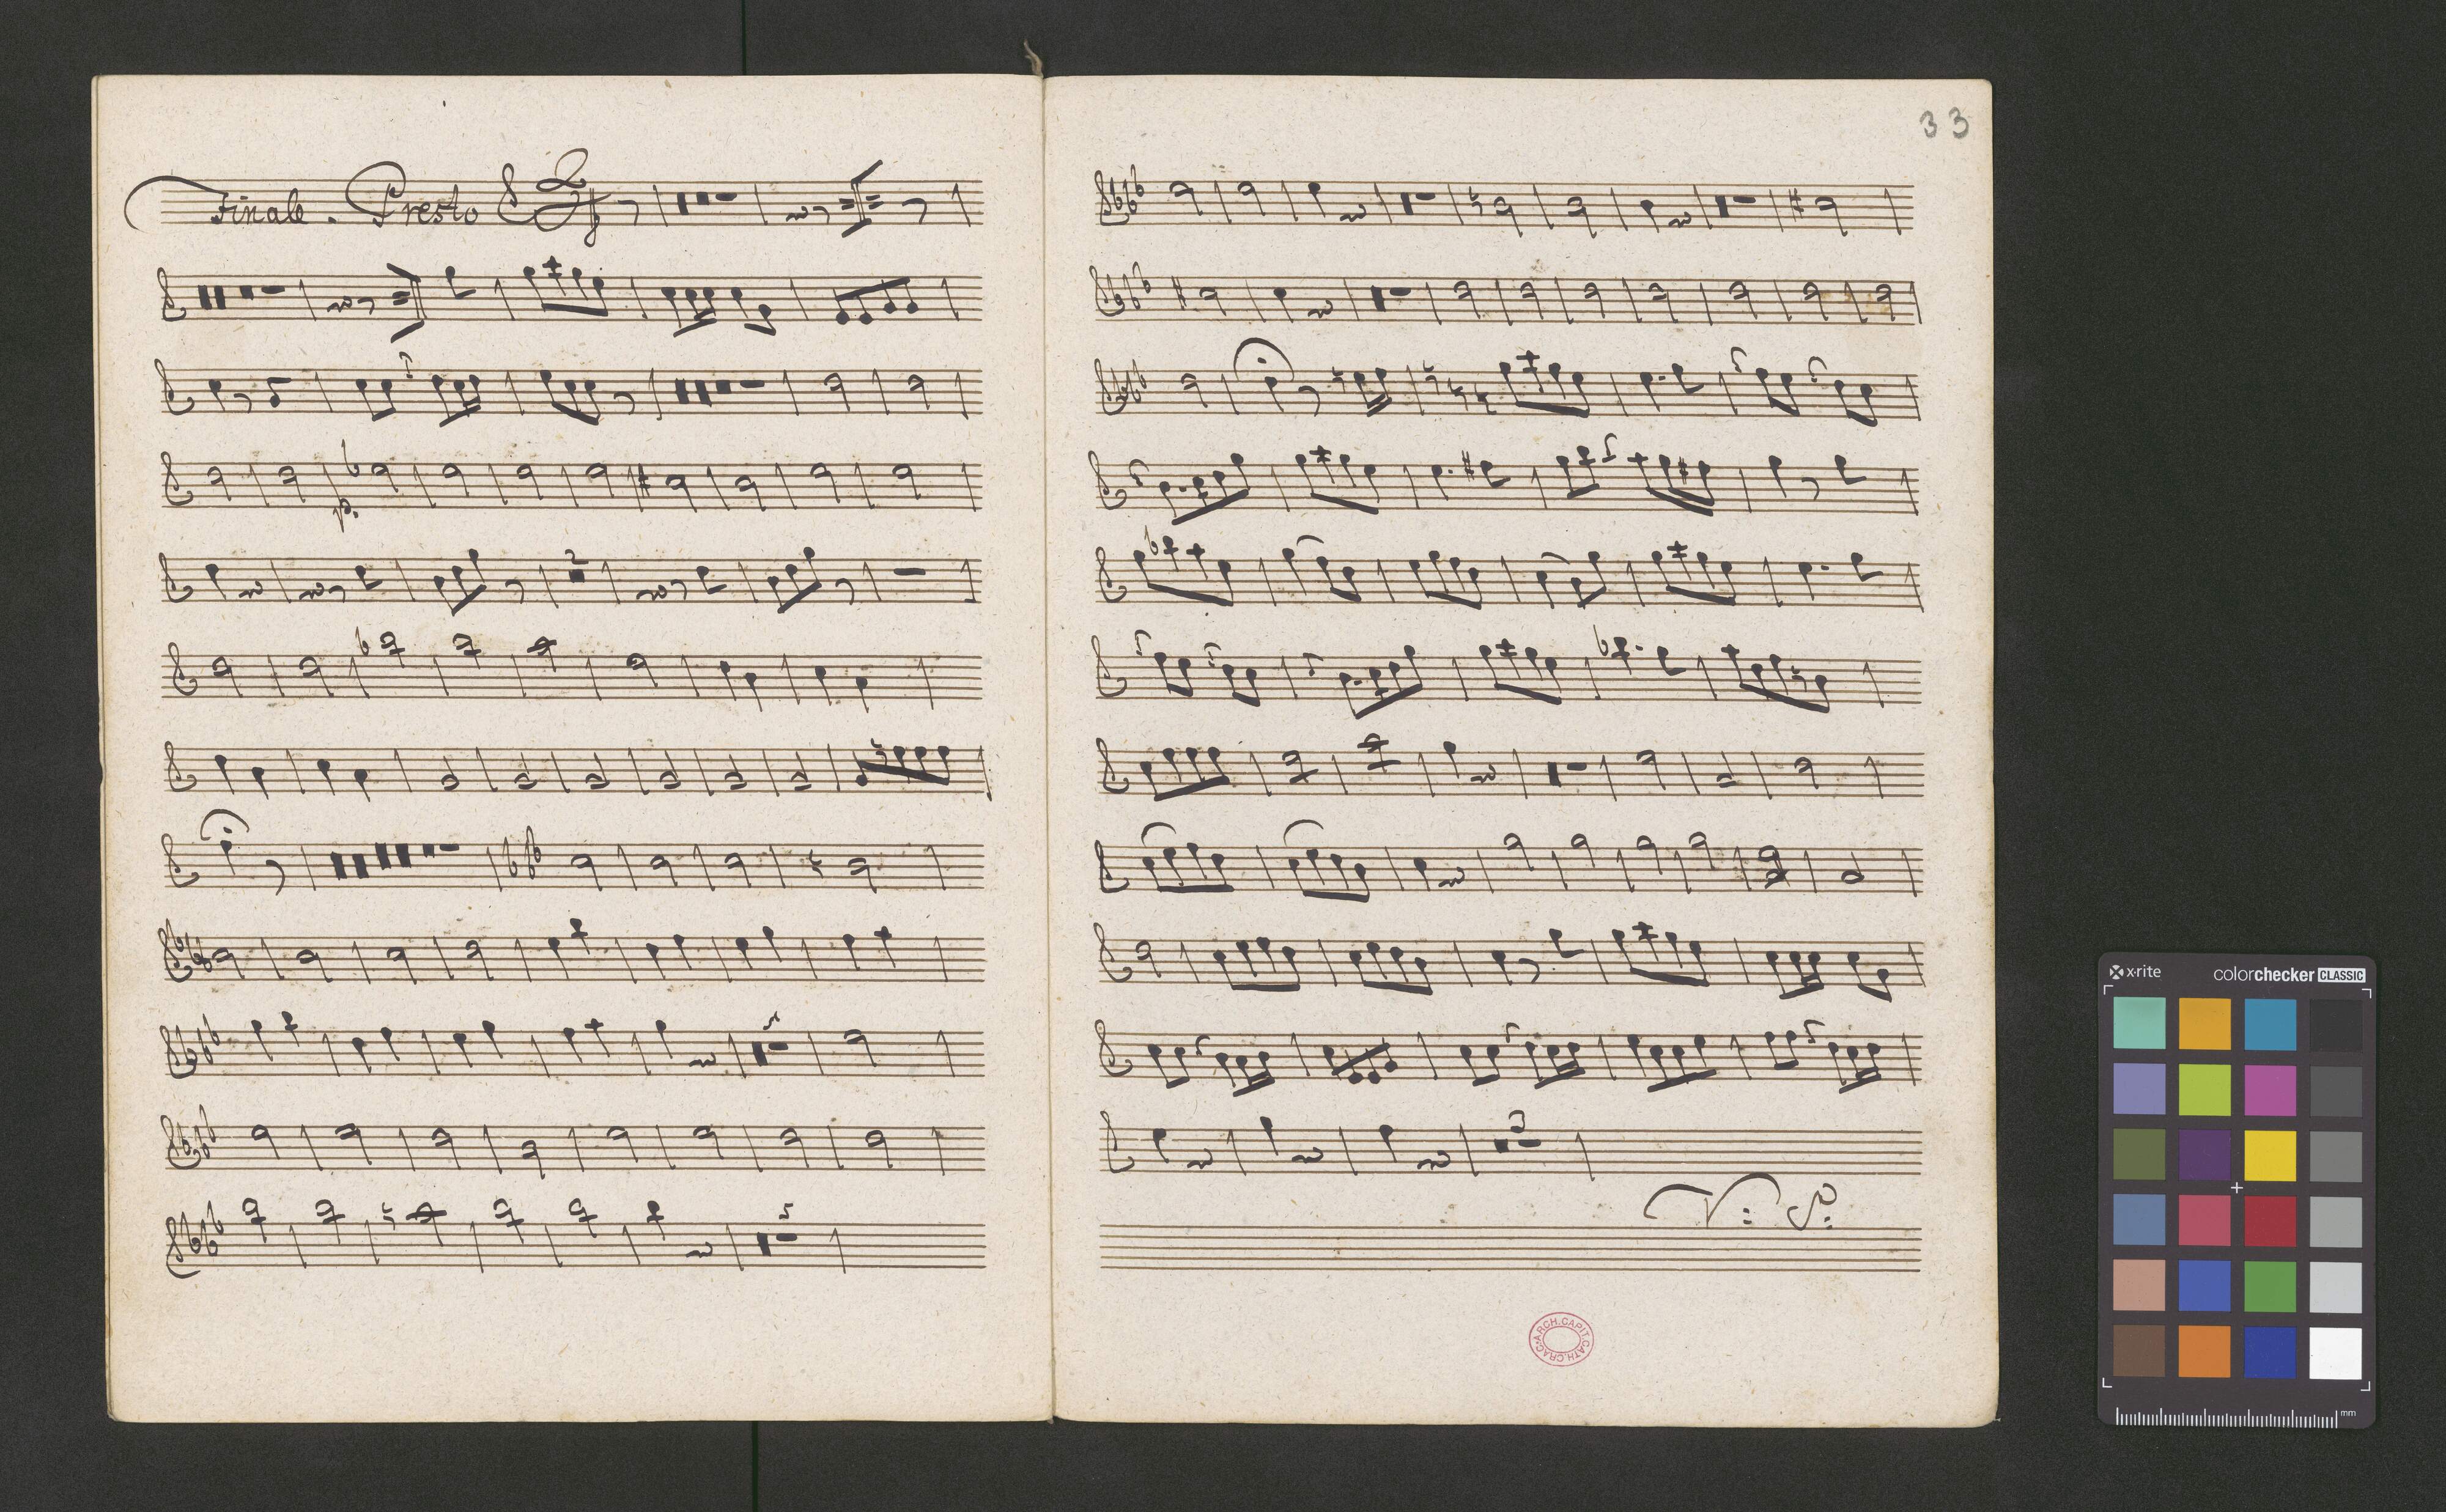 Finale. Presto
p.
2
5
5
33
3
V: S:
ARCH.CAPIT.CATH.CRAC.
x-rite
colorchecker CLASSIC
mm